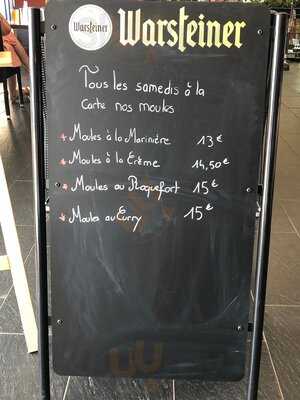 Warsteiner Warsteiner
Tous les samedis à la
Carte nos moules
* Moules à la Marinière 13€
* Moules à la Crème 14,50€
* Moules au Roquefort 15€
* Moules au Curry 15€